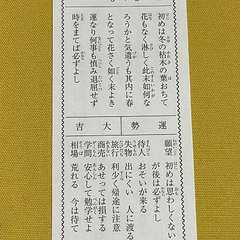 初めは冬の枯木の葉おちて
花もなく淋しく此末如何な
ろうかと気遣うも其内に春
となって花さく如く末よき
運なり何事も慎み退屈せず
時をまてば必ずよし
運勢 大吉
願望 初めは思わしくない
が後は必ずよし
待人 おそいが来る
失物 出にくい 人に渡る
旅行 利少く帰途に注意
商売 あせっては損する
学問 安心して勉学せよ
相場 荒れる 今は待て